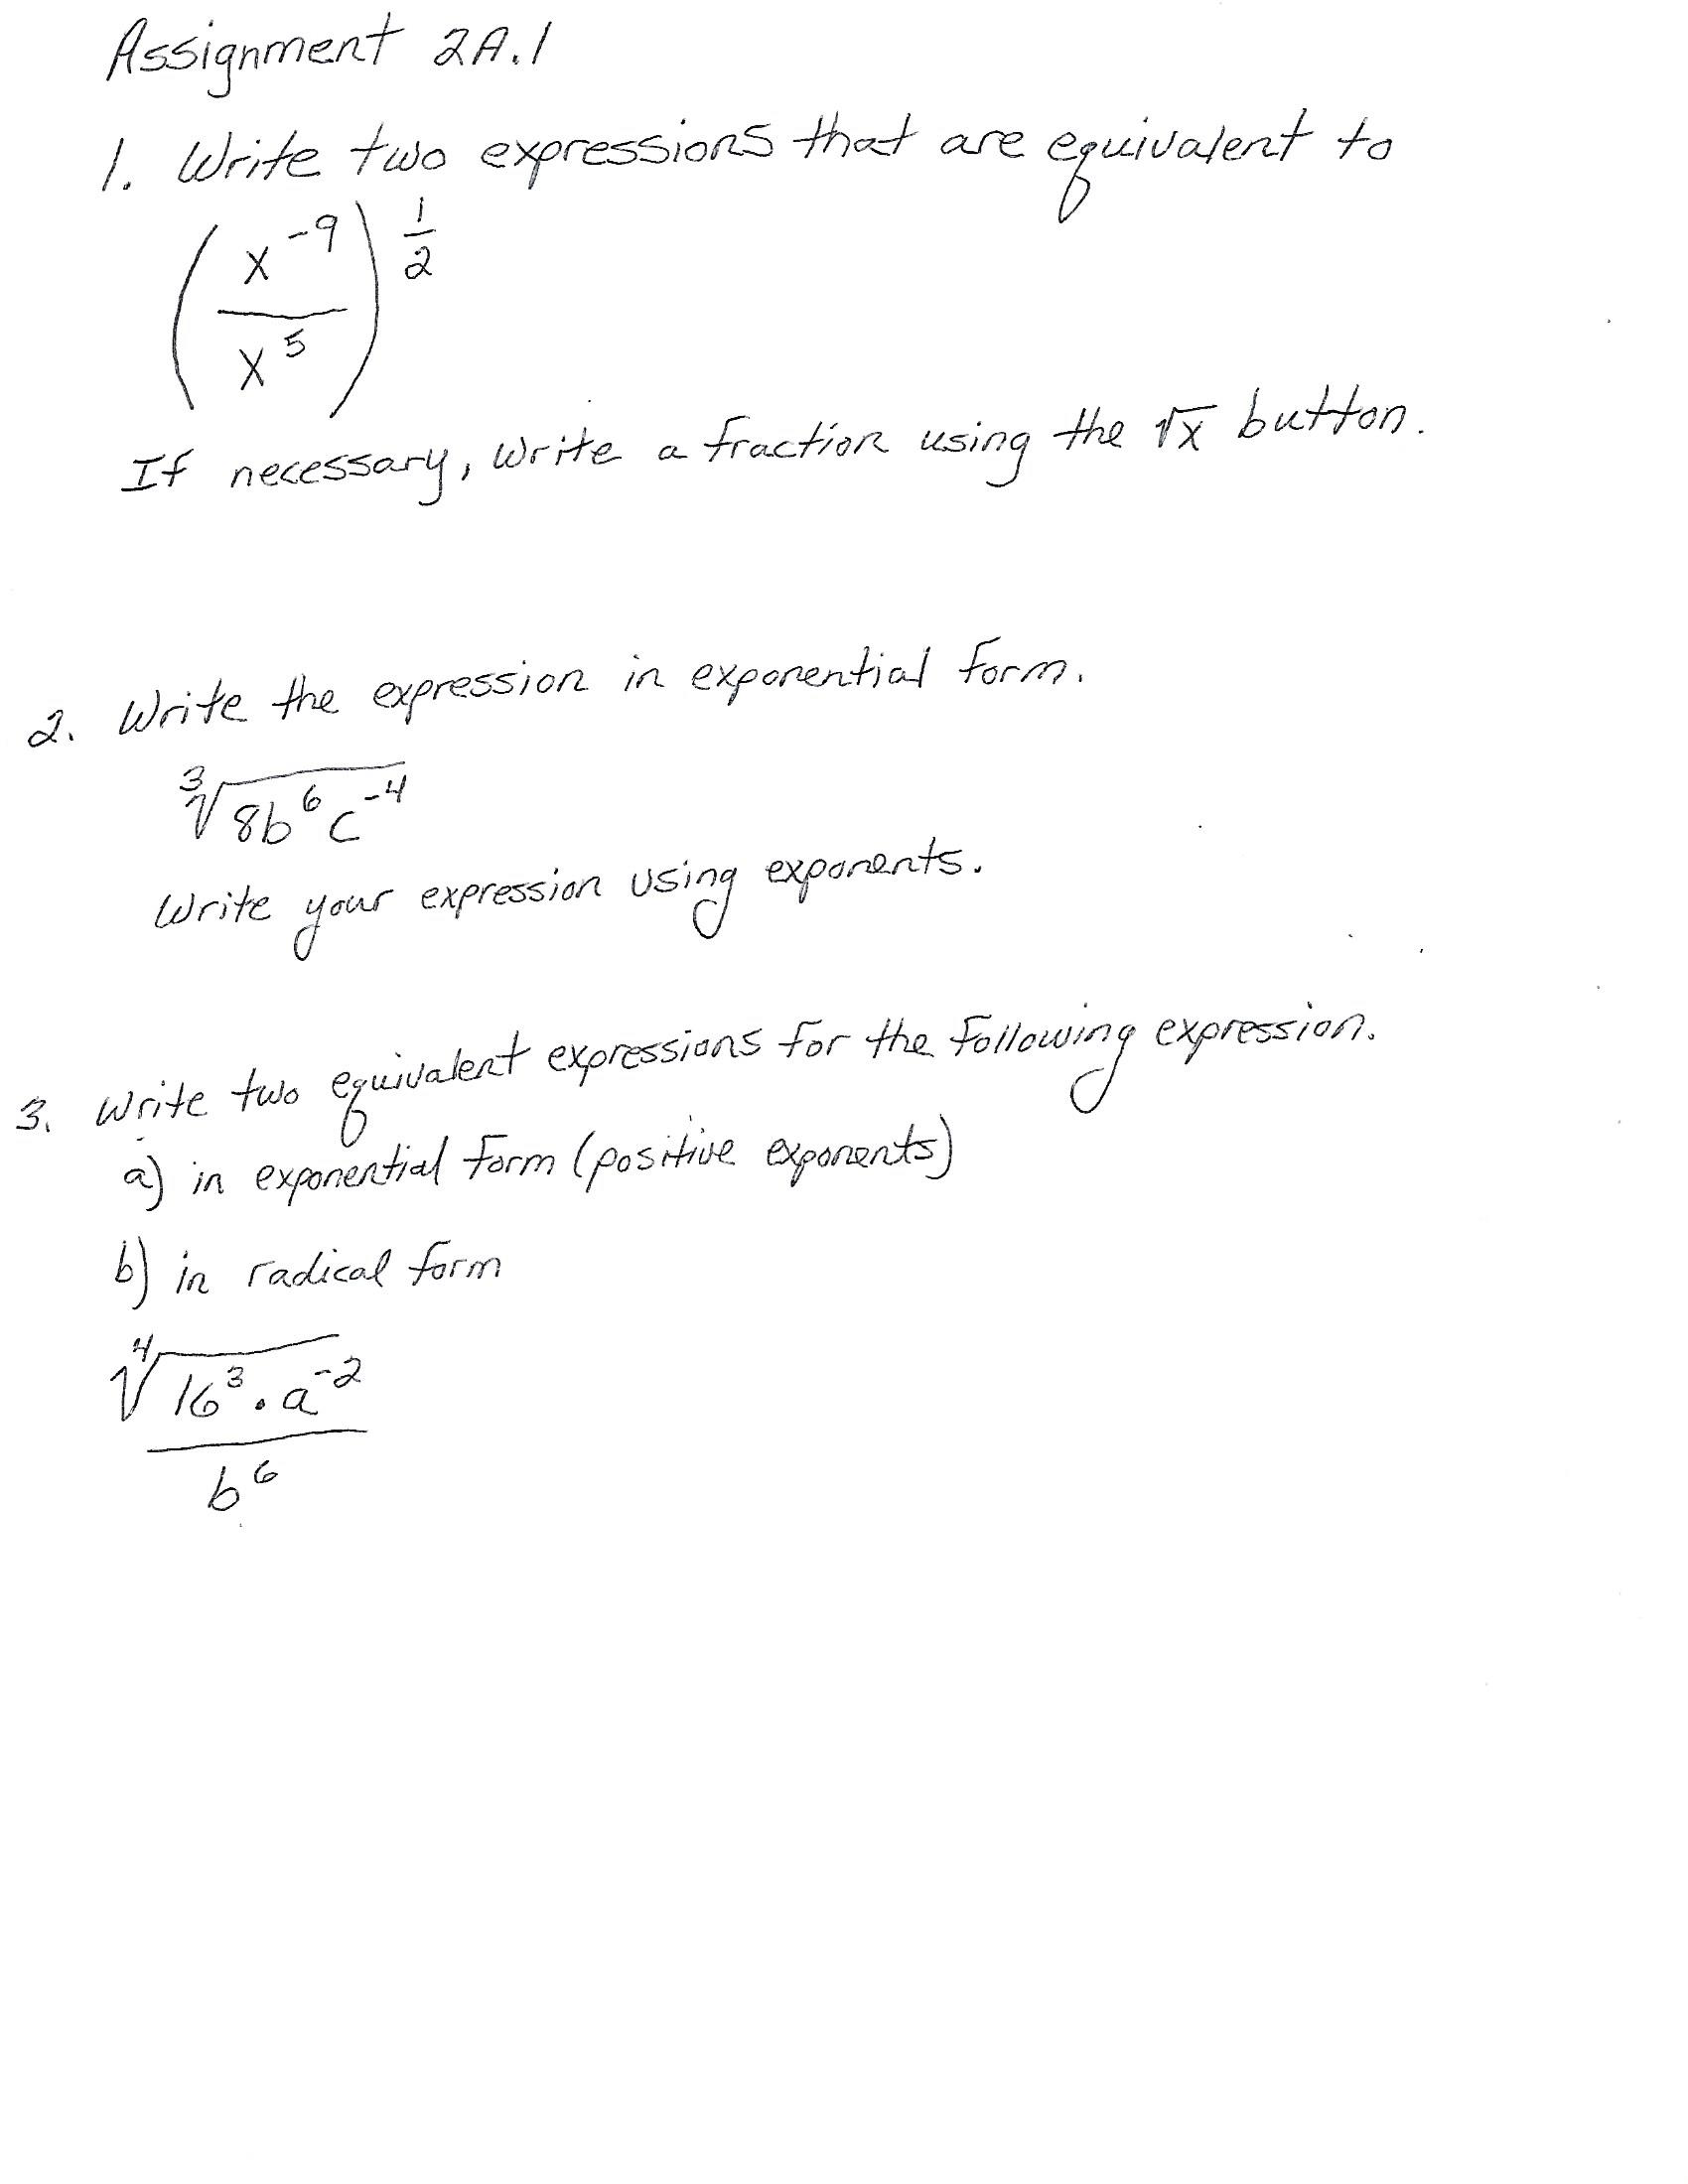 Assignment 2A.1
1. Write two expressions that are equivalent to
(x^-9 / x^5)^1/2
If necessary, write a fraction using the √x button.
2. Write the expression in exponential form.
∛(8b^6 c^-4)
Write your expression using exponents.
3. Write two equivalent expressions for the following expression.
a) in exponential form (positive exponents)
b) in radical form
∜(16^3 · a^-2) / b^6